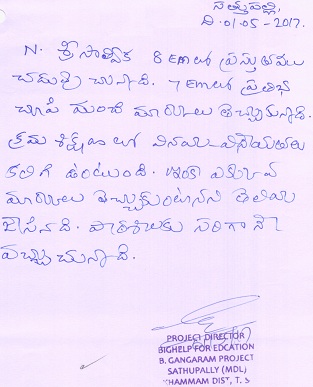 సత్తుపల్లి,
ది.01-05-2017.
N. శ్రీసాత్విక 8 EMలో ప్రస్తుతము
చదువు చున్నాది. 7 EMలో ప్రతిభ
చూపి మంచి మార్కులు తెచ్చుకున్నాది.
క్రమ శిక్షణ లో వినయ విధేయతలు
కలిగి ఉంటుంది. ఇంకా ఎక్కువ
మార్కులు తెచ్చుకుంటానని తెలియ
చేసినది. పాఠశాలకు సరిగానే
వచ్చుచున్నాది.
PROJECT DIRECTOR
BIGHELP FOR EDCATION
B. GANGARAM PROJECT
SATHUPALLY (MDL)
KHAMMAM DIST, T. S